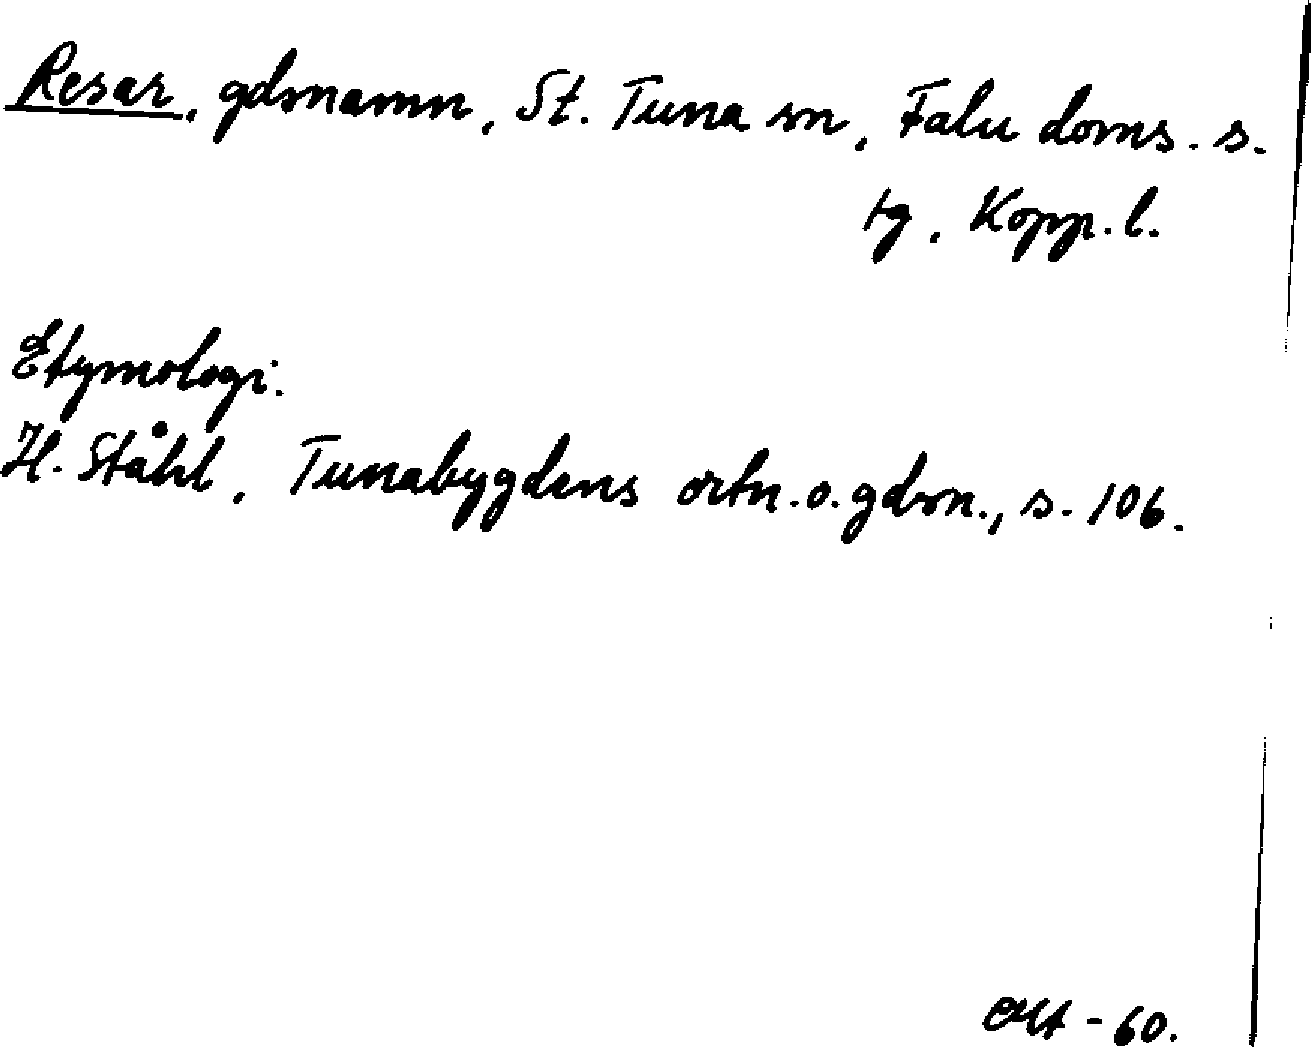 Resar, gdsnamn, St. Tuna sn, Falu doms. s.
tg, Kopp. l.
Etymologi.
H. Ståhl, Tunabygdens ortn. o. gdsn., s. 106.
-60.